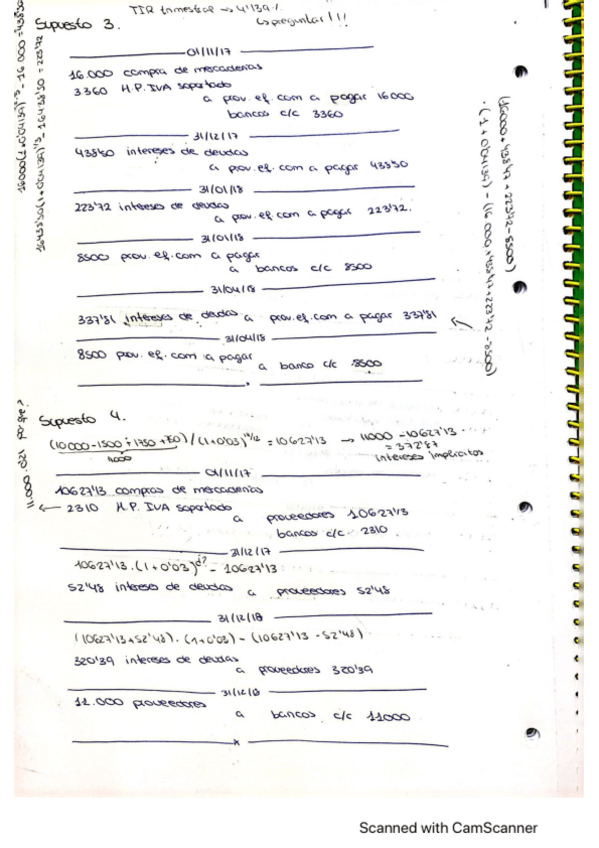 TIR trimestral → 4'139%
↳ preguntar!!!
Supuesto 3.
16000(1+0'04139)^2/3 - 16 000 = 438'50
16438'50(1+0'04139)^1/3 - 16438'50 = 223'72
01/11/17
16.000 compra de mercaderías
3360 H.P. IVA soportado
a prov. ef. com a pagar 16000
bancos c/c 3360
31/12/17
438'50 intereses de deudas
a prov. ef. com a pagar 438'50
31/01/18
223'72 intereses de deudas
a prov. ef. com a pagar 223'72.
31/01/18
8500 prov. ef. com a pagar
a bancos c/c 8500
31/04/18
337'81 intereses de deudas a prov. ef. com a pagar 337'81
31/04/18
8500 prov. ef. com a pagar
a banco c/c 8500
(16000 + 438'47 + 223'72 - 8500)
· (1 + 0'04139) - (16 000 + 438'47 + 223'72 - 8500)
Supuesto 4.
(10000 - 1500 + 1750 + 750) / (1+0'03)^14/12 = 10627'13 → 11000 - 10627'13
11.000
= 372'87
intereses implícitos
11.000 · 0'21 por qué?
01/11/17
10627'13 compras de mercaderías
← 2310 H.P. IVA soportado
a proveedores 10627'13
bancos c/c 2310
31/12/17
10627'13 · (1+0'03)^¿? - 10627'13
52'48 intereses de deudas a proveedores 52'48
31/12/18
(10627'13 + 52'48) · (1+0'03) - (10627'13 - 52'48)
320'39 intereses de deudas
a proveedores 320'39
31/12/18
11.000 proveedores
a bancos c/c 11000
Scanned with CamScanner